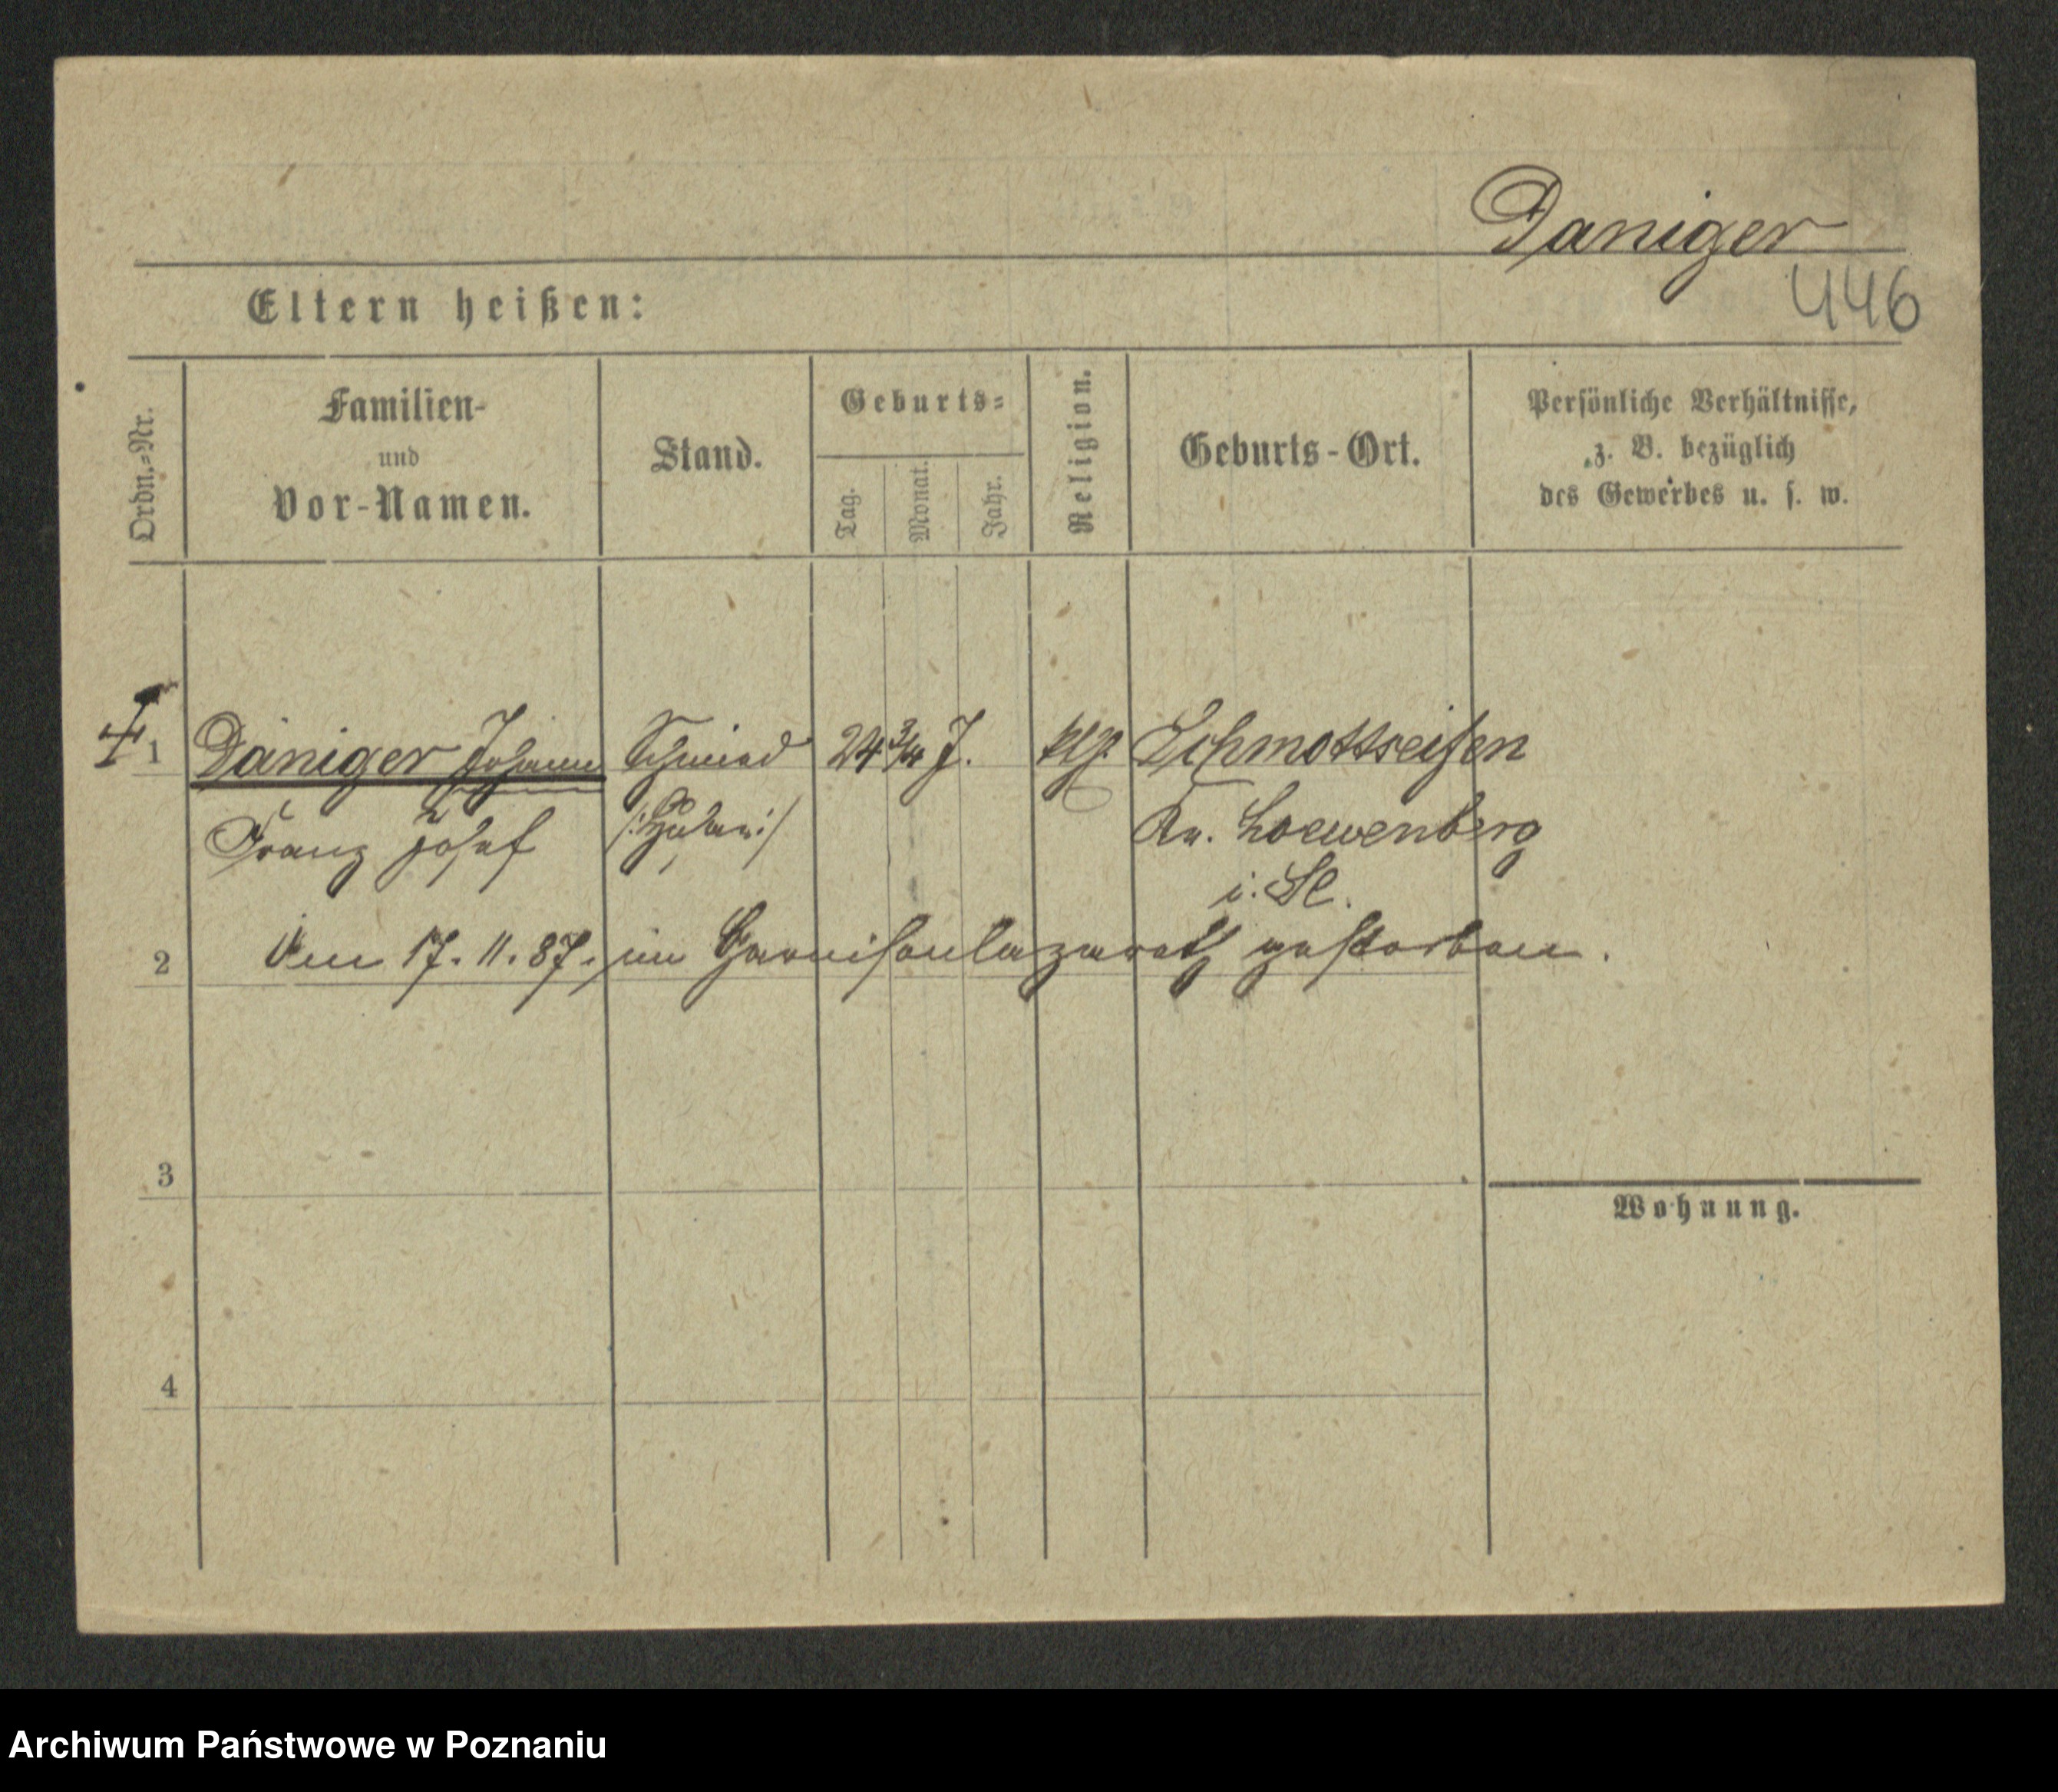 Daniger
446
Eltern heißen:
Ordn.-Nr.
Familien-
und
Vor-Namen.
Stand.
Geburts-
Tag.
Monat.
Jahr.
Religion.
Geburts-Ort.
Persönliche Verhältnisse,
z. B. bezüglich
des Gewerbes u. s. w.
1 Daniger Johann Schmied 24 3/4 J. Schmottseifen
Franz Josef /:Husar:/ Kr. Loewenberg
i. Sl.
2 Am 17. 11. 87. im Garnisonlazareth gestorben.
3
Wohnung.
4
Archiwum Państwowe w Poznaniu